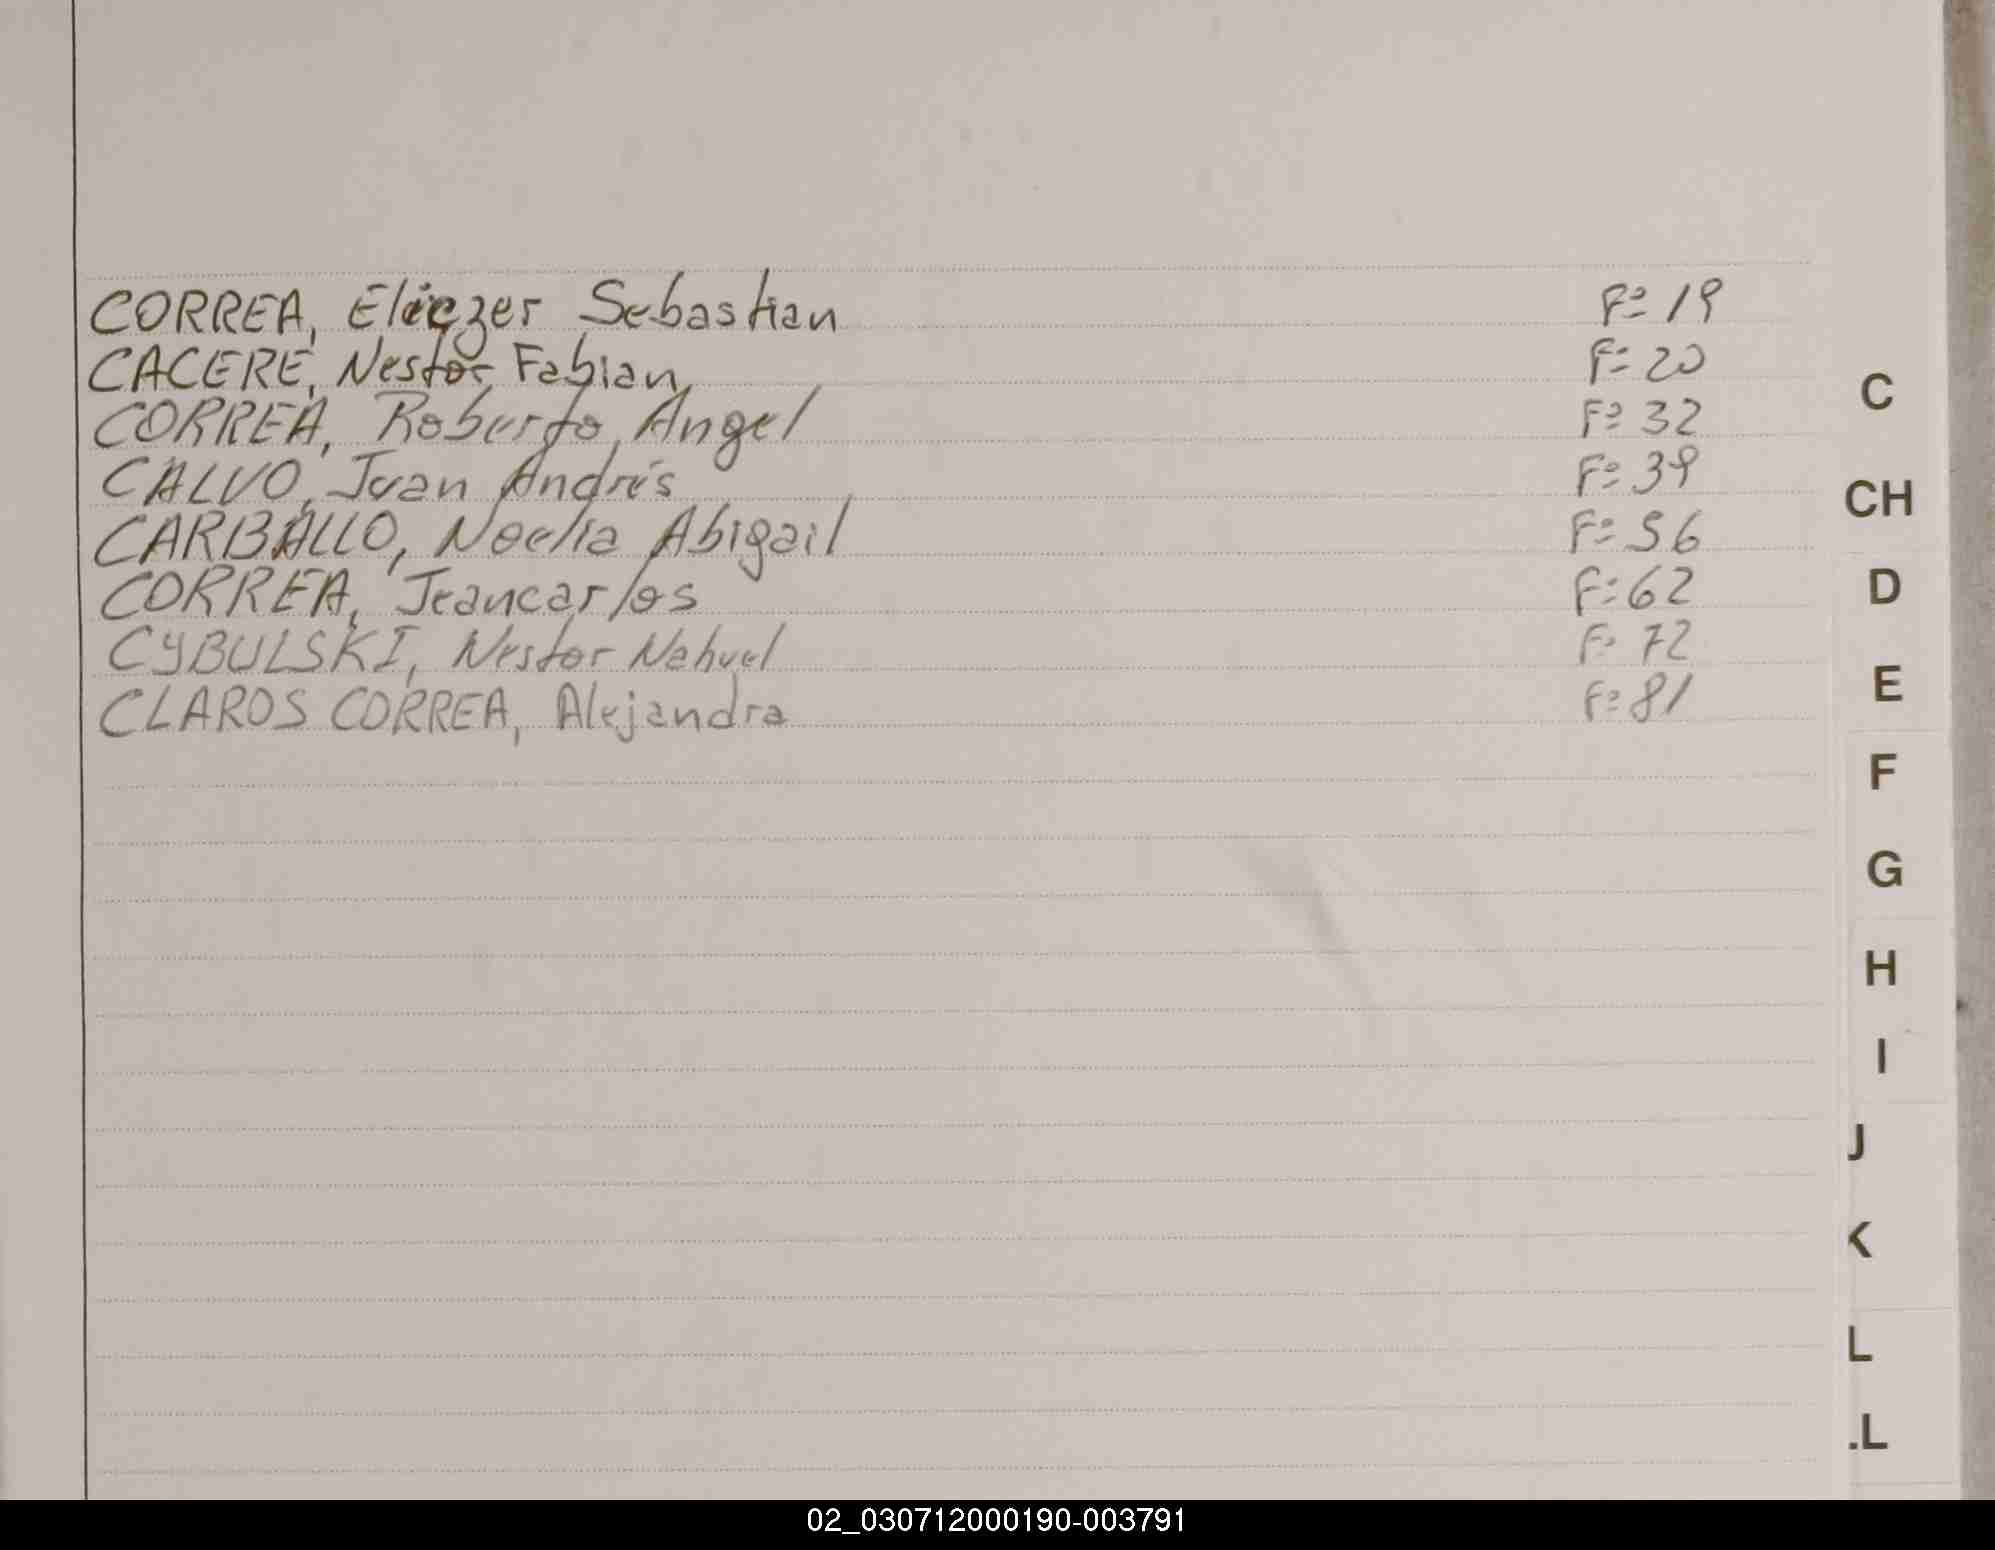 CORREA, Eliezer Sebastian F° 19
CACERE, Nestor Fabian F° 20
CORREA, Roberto Angel F° 32
CALVO, Juan Andrés F° 39
CARBALLO, Noelia Abigail F° 56
CORREA, Jeancarlos F° 62
CYBULSKI, Nestor Nahuel F° 72
CLAROS CORREA, Alejandra F° 81
C
CH
D
E
F
G
H
I
J
K
L
.L
02_030712000190-003791